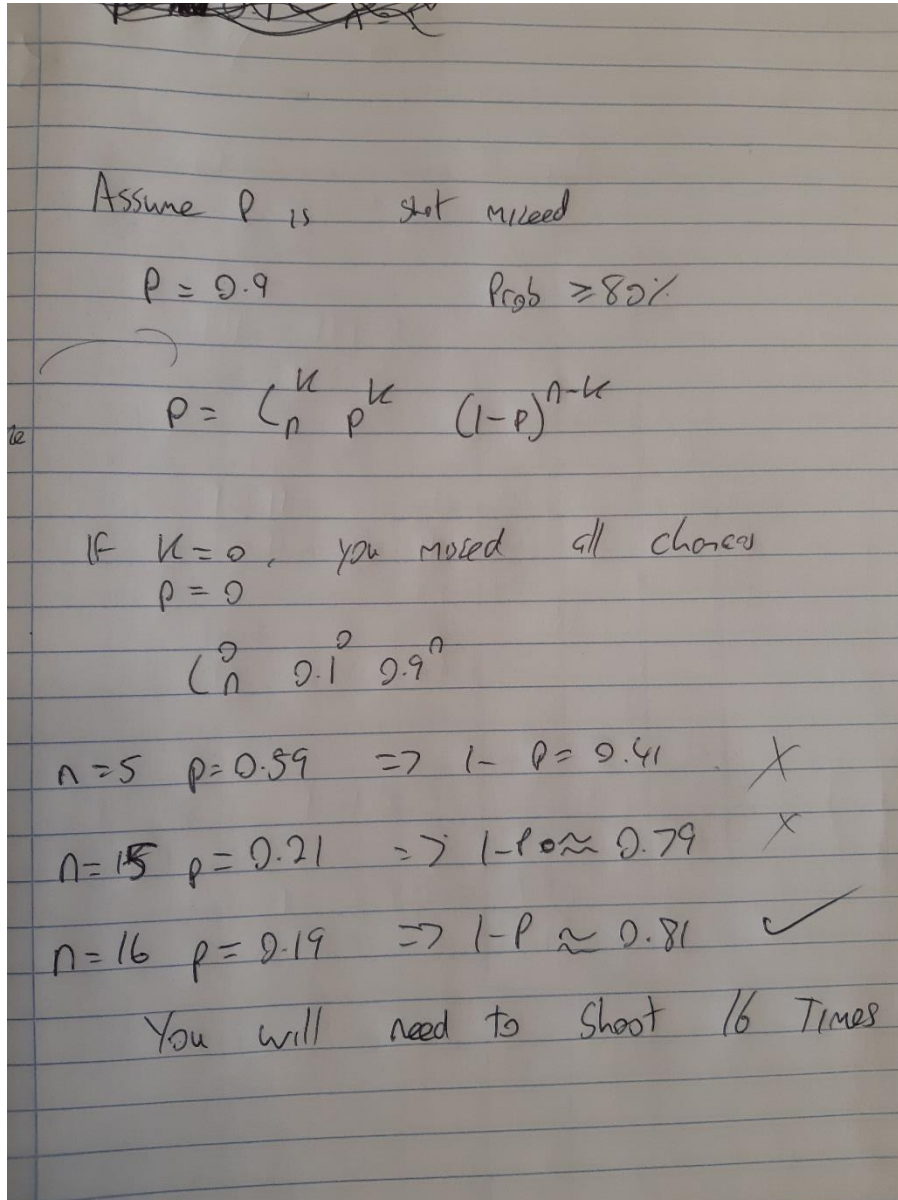 Assume P is shot missed
P = 0.9 Prob ≥ 80%
P = C_n^k p^k (1-p)^{n-k}
IF k = 0, you missed all chances
P = 0
C_n^0 0.1^0 0.9^n
n = 5 p = 0.59 => 1 - P = 0.41 X
n = 15 p = 0.21 => 1-P ≈ 0.79 X
n = 16 p = 0.19 => 1-P ≈ 0.81 ✓
You will need to shoot 16 Times